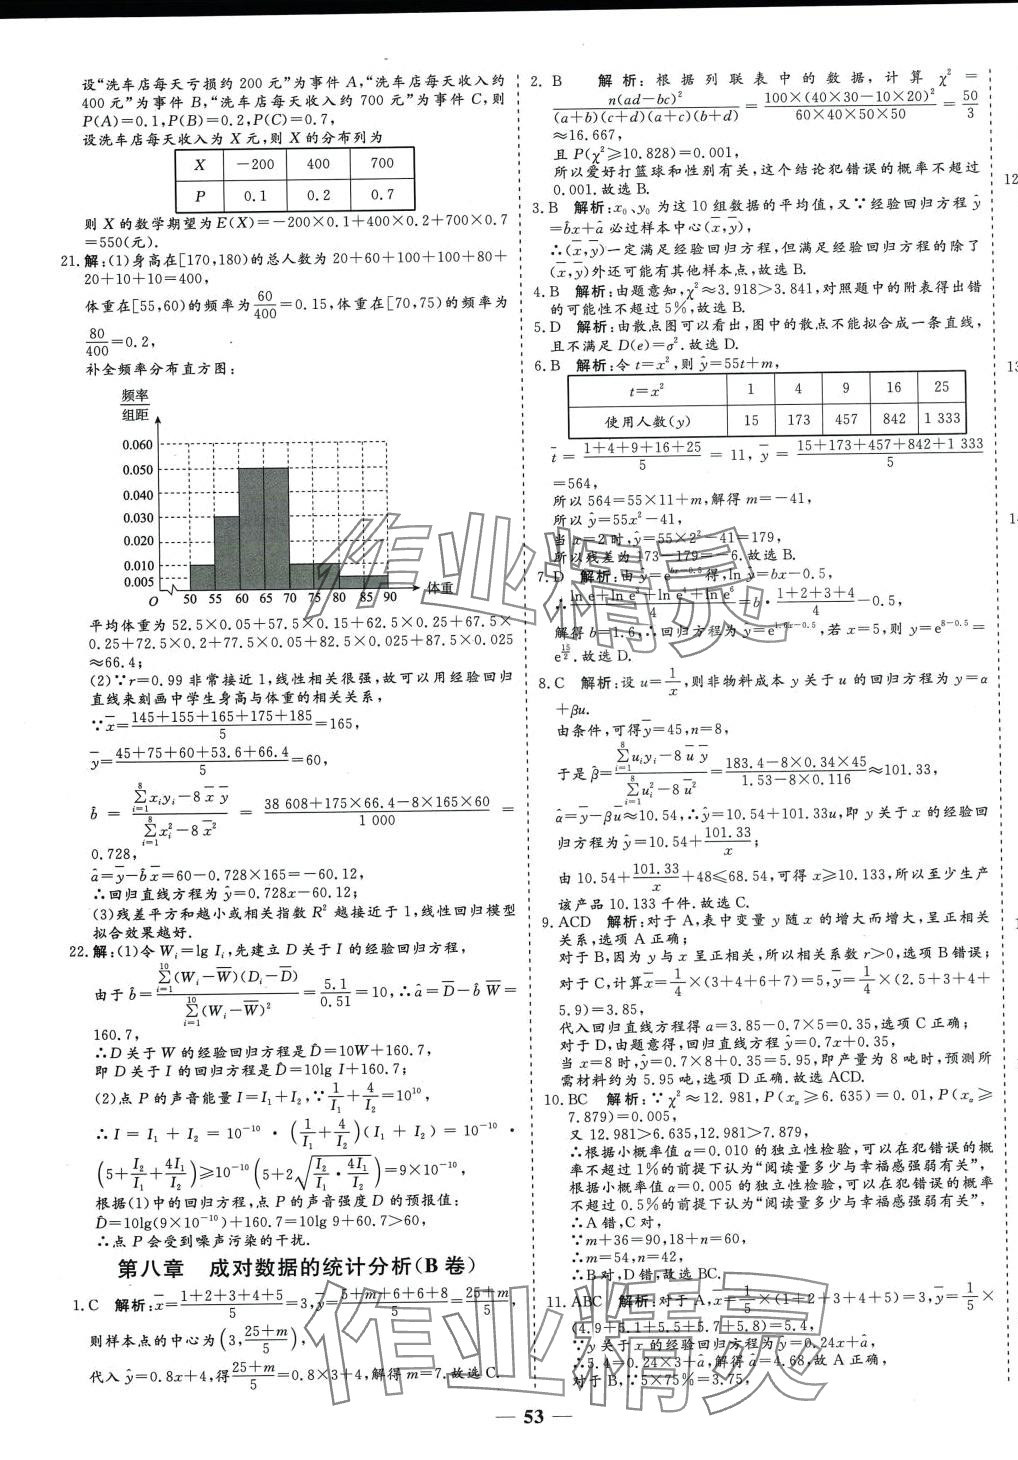 设“洗车店每天亏损约 200 元”为事件 A,“洗车店每天收入约
400 元”为事件 B,“洗车店每天收入约 700 元”为事件 C,则
P(A)=0.1,P(B)=0.2,P(C)=0.7,
设洗车店每天收入为 X 元,则 X 的分布列为
X −200 400 700
P 0.1 0.2 0.7
则 X 的数学期望为 E(X)=−200×0.1+400×0.2+700×0.7
=550(元).
21. 解:(1)身高在[170,180)的总人数为 20+60+100+100+80+
20+10+10=400,
体重在[55,60)的频率为 60/400=0.15,体重在[70,75)的频率为
80/400=0.2,
补全频率分布直方图:
频率/组距
0.060
0.050
0.040
0.030
0.020
0.010
0.005
O 50 55 60 65 70 75 80 85 90 体重
平均体重为 52.5×0.05+57.5×0.15+62.5×0.25+67.5×
0.25+72.5×0.2+77.5×0.05+82.5×0.025+87.5×0.025
≈66.4;
(2)∵r=0.99 非常接近 1,线性相关很强,故可以用经验回归
直线来刻画中学生身高与体重的相关关系,
∵x̄=(145+155+165+175+185)/5=165,
ȳ=(45+75+60+53.6+66.4)/5=60,
b̂=(∑(i=1→8)xᵢyᵢ−8x̄ȳ)/(∑(i=1→8)xᵢ²−8x̄²)=(38 608+175×66.4−8×165×60)/1 000=
0.728,
â=ȳ−b̂x̄=60−0.728×165=−60.12,
∴回归直线方程为 ŷ=0.728x−60.12;
(3)残差平方和越小或相关指数 R² 越接近于 1,线性回归模型
拟合效果越好.
22. 解:(1)令 Wᵢ=lg Iᵢ,先建立 D 关于 I 的经验回归方程,
由于 b̂=(∑(i=1→10)(Wᵢ−W̄)(Dᵢ−D̄))/(∑(i=1→10)(Wᵢ−W̄)²)=5.1/0.51=10,∴â=D̄−b̂W̄=
160.7,
∴D 关于 W 的经验回归方程是 D̂=10W+160.7,
即 D 关于 I 的经验回归方程是 D̂=10lg I+160.7;
(2)点 P 的声音能量 I=I₁+I₂,∵1/I₁+4/I₂=10¹⁰,
∴I=I₁+I₂=10⁻¹⁰·(1/I₁+4/I₂)(I₁+I₂)=10⁻¹⁰·
(5+I₂/I₁+4I₁/I₂)≥10⁻¹⁰(5+2√(I₂/I₁·4I₁/I₂))=9×10⁻¹⁰,
根据(1)中的回归方程,点 P 的声音强度 D 的预报值:
D̂=10lg(9×10⁻¹⁰)+160.7=10lg 9+60.7>60,
∴点 P 会受到噪声污染的干扰.
第八章 成对数据的统计分析(B 卷)
1. C 解析:x̄=(1+2+3+4+5)/5=3,ȳ=(5+m+6+6+8)/5=(25+m)/5,
则样本点的中心为(3,(25+m)/5),
代入 ŷ=0.8x+4,得(25+m)/5=0.8×3+4,解得 m=7.故选 C.
2. B 解析:根据列联表中的数据,计算 χ²=
n(ad−bc)²/((a+b)(c+d)(a+c)(b+d))=100×(40×30−10×20)²/(60×40×50×50)=50/3
≈16.667,
且 P(χ²≥10.828)=0.001,
所以爱好打篮球和性别有关,这个结论犯错误的概率不超过
0.001.故选 B.
3. B 解析:x₀、y₀ 为这 10 组数据的平均值,又∵经验回归方程 ŷ
=b̂x+â 必过样本中心(x̄,ȳ),
∴(x̄,ȳ)一定满足经验回归方程,但满足经验回归方程的除了
(x̄,ȳ)外还可能有其他样本点,故选 B.
4. B 解析:由题意知,χ²≈3.918>3.841,对照题中的附表得出错
的可能性不超过 5%,故选 B.
5. D 解析:由散点图可以看出,图中的散点不能拟合成一条直线,
且不满足 D(e)=σ².故选 D.
6. B 解析:令 t=x²,则 ŷ=55t+m,
t=x² 1 4 9 16 25
使用人数(y) 15 173 457 842 1 333
t̄=(1+4+9+16+25)/5=11,ȳ=(15+173+457+842+1 333)/5
=564,
所以 564=55×11+m,解得 m=−41,
所以 ŷ=55x²−41,
当 x=2 时,ŷ=55×2²−41=179,
所以残差为 173−179=−6.故选 B.
7. D 解析:由 ŷ=e^(bx−0.5)得,ln ŷ=bx−0.5,
∴(ln e+ln e³+ln e⁴+ln e⁶)/4=b·(1+2+3+4)/4−0.5,
解得 b=1.6,∴回归方程为 ŷ=e^(1.6x−0.5),若 x=5,则 y=e^(8−0.5)=
e^(15/2).故选 D.
8. C 解析:设 u=1/x,则非物料成本 y 关于 u 的回归方程为 y=α
+βu.
由条件,可得 ȳ=45,n=8,
于是 β̂=(∑(i=1→8)uᵢyᵢ−8ūȳ)/(∑(i=1→8)uᵢ²−8ū²)=(183.4−8×0.34×45)/(1.53−8×0.116)≈101.33,
α̂=ȳ−β̂ū≈10.54,∴ŷ=10.54+101.33u,即 y 关于 x 的经验回
归方程为 ŷ=10.54+101.33/x;
由 10.54+101.33/x+48≤68.54,可得 x≥10.133,所以至少生产
该产品 10.133 千件.故选 C.
9. ACD 解析:对于 A,表中变量 y 随 x 的增大而增大,呈正相关
关系,选项 A 正确;
对于 B,因为 y 与 x 呈正相关,所以相关系数 r>0,选项 B 错误;
对于 C,计算 x̄=1/4×(3+4+6+7)=5,ȳ=1/4×(2.5+3+4+
5.9)=3.85,
代入回归直线方程得 a=3.85−0.7×5=0.35,选项 C 正确;
对于 D,由题意得,回归直线方程 ŷ=0.7x+0.35,
当 x=8 时,ŷ=0.7×8+0.35=5.95,即产量为 8 吨时,预测所
需材料约为 5.95 吨,选项 D 正确.故选 ACD.
10. BC 解析:∵χ²≈12.981,P(xₐ≥6.635)=0.01,P(xₐ≥
7.879)=0.005,
又 12.981>6.635,12.981>7.879,
∴根据小概率值 α=0.010 的独立性检验,可以在犯错误的概
率不超过 1%的前提下认为“阅读量多少与幸福感强弱有关”,
根据小概率值 α=0.005 的独立性检验,可以在犯错误的概率
不超过 0.5%的前提下认为“阅读量多少与幸福感强弱有关”,
∴A 错,C 对,
∵m+36=90,18+n=60,
∴m=54,n=42,
∴B 对,D 错,故选 BC.
11. ABC 解析:对于 A,x̄=1/5×(1+2+3+4+5)=3,ȳ=1/5×
(4.9+5.1+5.5+5.7+5.8)=5.4,
∵y 关于 x 的经验回归方程为 ŷ=0.24x+â,
∴5.4=0.24×3+â,解得 â=4.68,故 A 正确,
对于 B,∵5×75%=3.75,
— 53 —
12
13
1
作业精灵
作业精灵